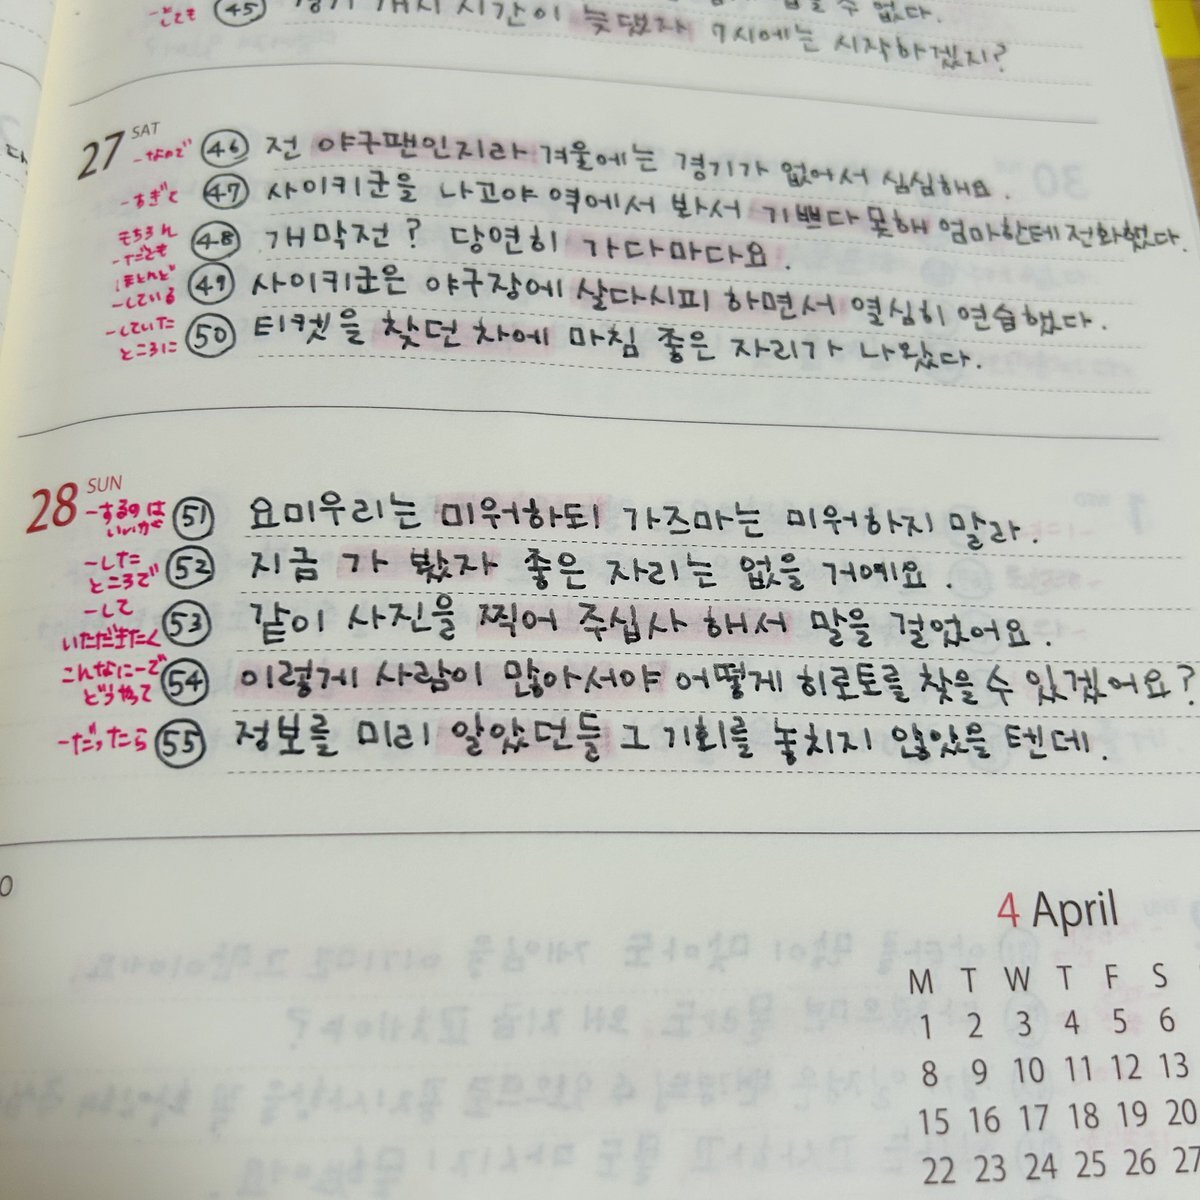 -とても ㊺ 경기 개시 시간이 늦댔자 7시에는 시작하겠지?
수 없다.
27 SAT
-なので ㊻ 전 야구팬인지라 겨울에는 경기가 없어서 심심해요.
-すぎて ㊼ 사이키군을 나고야 역에서 봐서 기쁘다 못해 엄마한테 전화했다.
もちろん -だとも ㊽ 개막전? 당연히 가다마다요.
ほとんど -している ㊾ 사이키군은 야구장에 살다시피 하면서 열심히 연습했다.
-していた ところに ㊿ 티켓을 찾던 차에 마침 좋은 자리가 나왔다.
28 SUN
-するのは いいが 51 요미우리는 미워하되 가즈마는 미워하지 말라.
-した ところで 52 지금 가 봤자 좋은 자리는 없을 거예요.
-して いただきたく 53 같이 사진을 찍어 주십사 해서 말을 걸었어요.
こんなに-で どうやって 54 이렇게 사람이 많아서야 어떻게 히로토를 찾을 수 있겠어요?
-だったら 55 정보를 미리 알았던들 그 기회를 놓치지 않았을 텐데.
4 April
M T W T F S
1 2 3 4 5 6
8 9 10 11 12 13
15 16 17 18 19 20
22 23 24 25 26 27